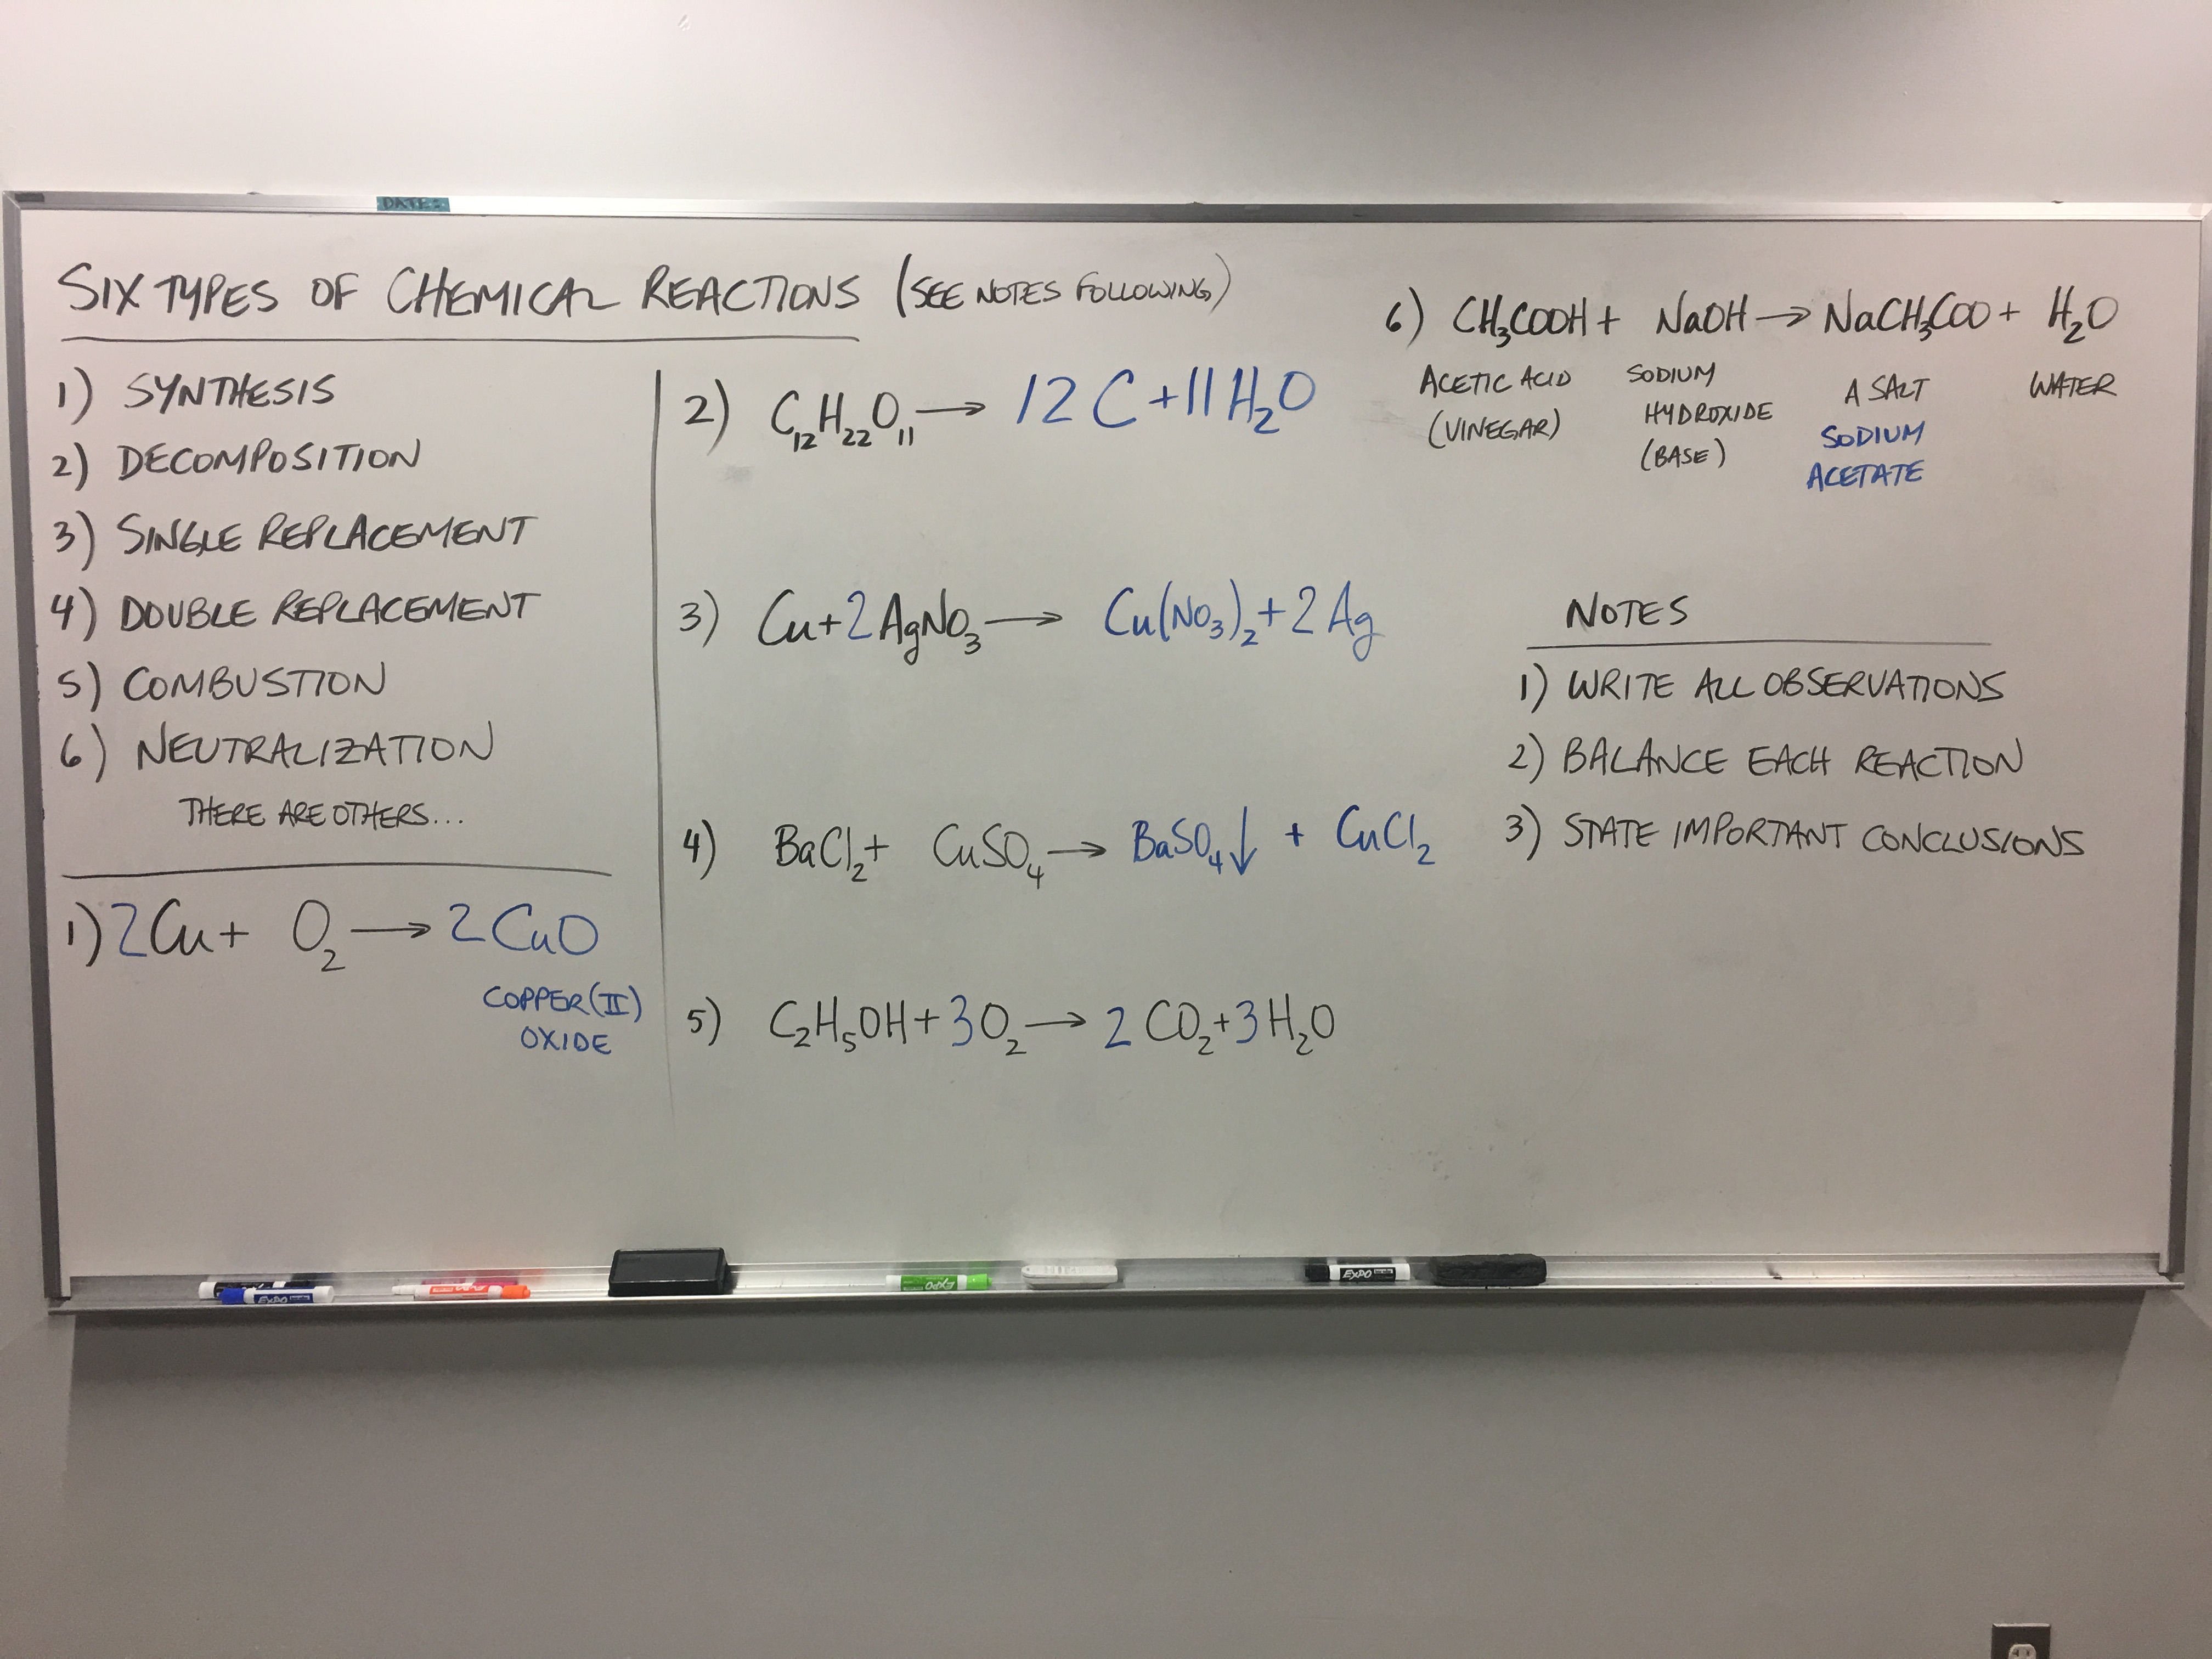 DATE:
SIX TYPES OF CHEMICAL REACTIONS (SEE NOTES FOLLOWING)
1) SYNTHESIS
2) DECOMPOSITION
3) SINGLE REPLACEMENT
4) DOUBLE REPLACEMENT
5) COMBUSTION
6) NEUTRALIZATION
THERE ARE OTHERS...
1) 2Cu + O₂ → 2CuO
COPPER (II)
OXIDE
2) C₁₂H₂₂O₁₁ → 12C + 11H₂O
3) Cu + 2AgNO₃ → Cu(NO₃)₂ + 2Ag
4) BaCl₂ + CuSO₄ → BaSO₄↓ + CuCl₂
5) C₂H₅OH + 3O₂ → 2CO₂ + 3H₂O
6) CH₃COOH + NaOH → NaCH₃COO + H₂O
ACETIC ACID SODIUM A SALT WATER
(VINEGAR) HYDROXIDE SODIUM
(BASE) ACETATE
NOTES
1) WRITE ALL OBSERVATIONS
2) BALANCE EACH REACTION
3) STATE IMPORTANT CONCLUSIONS
EXPO
EXPO
EXPO
EXPO